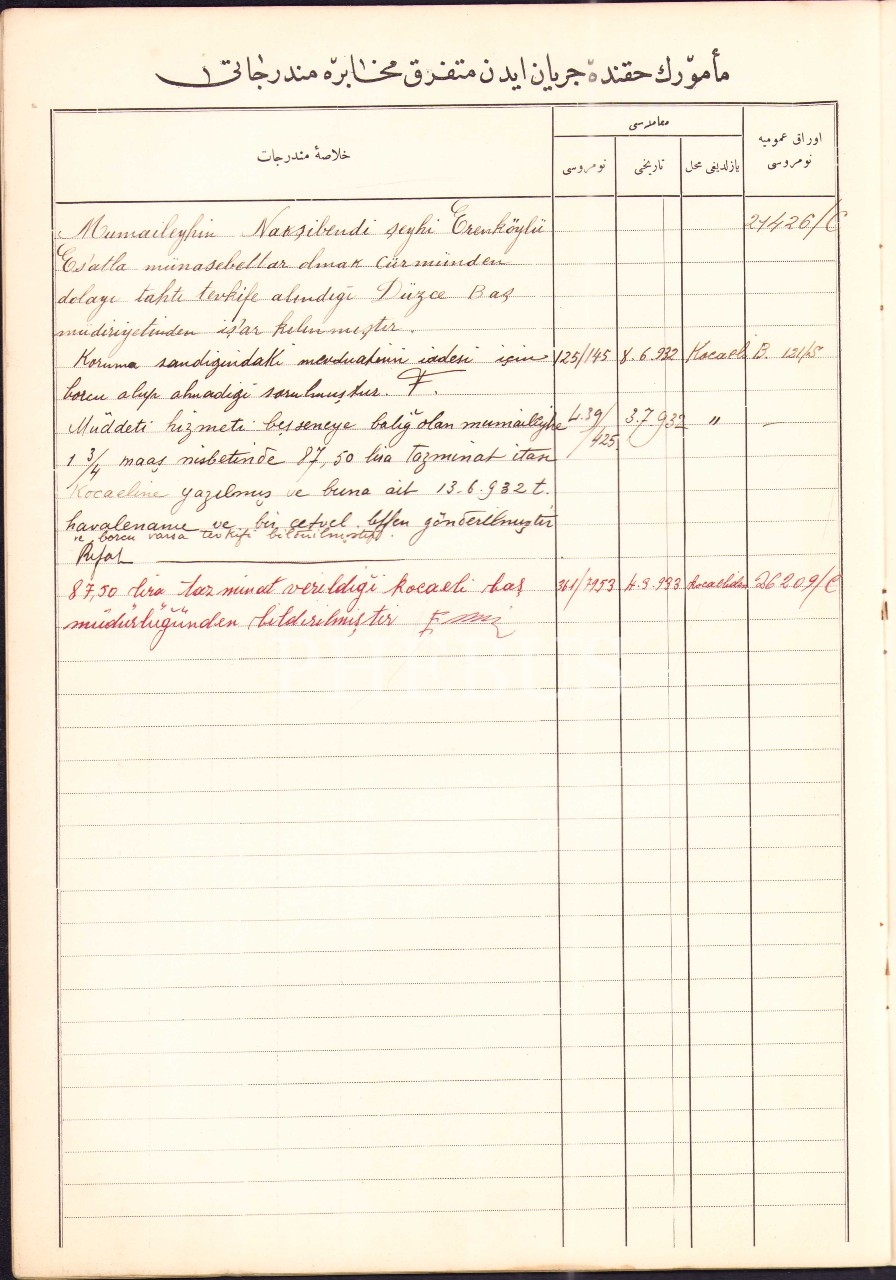 مأمورك حقنده جريان ايدن متفرق مخابره مندرجاتى
خلاصهٔ مندرجات
معاملەسى
نومروسى
تاريخى
يازلديغى محل
اوراق عموميه نومروسى
Mumaileyhin Nakşibendi şeyhi Erenköylü 21426/C
Es'atla münasebettar olmak cürmünden
dolayı tahtı tevkife alındığı Düzce Baş
müdiriyetinden iş'ar kılınmıştır.
Koruma sandığındaki mevduatının iadesi için 125/145 8.6.932 Kocaeli B. 121/5
borcu olup olmadığı sorulmuştur.
Müddeti hizmeti beş seneye baliğ olan mumaileyhe 439/425 3.7.932 "
1 3/4 maaş nisbetinde 87,50 lira tazminat itası
Kocaeline yazılmış ve buna ait 13.6.932 t.
havalename ve bir cetvel leffen gönderilmiştir
ve borcu varsa tevkifi bildirilmiştir.
Rifat
87,50 lira tazminat verildiği kocaeli baş 361/7953 4.9.933 kocaeliden 26209/C
müdürlüğünden bildirilmiştir
PHEBUS